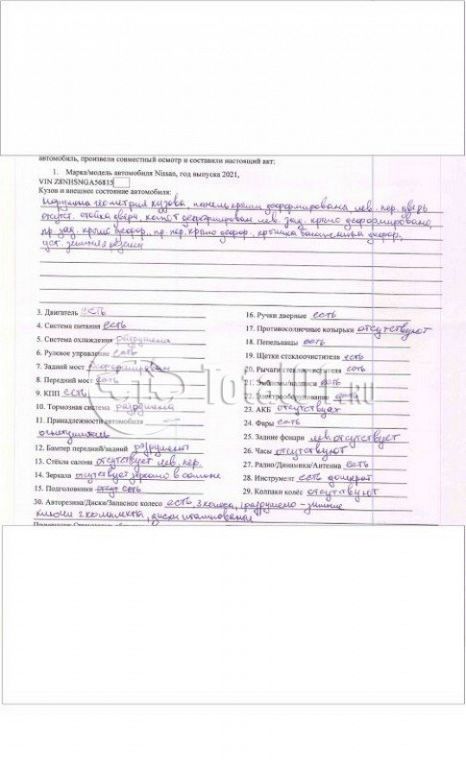 автомобиль, произвели совместный осмотр и составили настоящий акт:
1. Марка/модель автомобиля Nissan, год выпуска 2021,
VIN Z8NHSNGA56815
Кузов и внешнее состояние автомобиля:
Нарушена геометрия кузова, панель крыши деформирована, лев. пер. дверь
отсутст. стойка двери, капот деформирован лев. зад. крыло деформировано,
пр. зад. крыло деформ., пр. пер. крыло дефор., крышка багажника дефор,
уст. зимняя резина
3. Двигатель есть
4. Система питания есть
5. Система охлаждения разрушена
6. Рулевое управление есть
7. Задний мост деформирован
8. Передний мост есть
9. КПП есть
10. Тормозная система разрушена
11. Принадлежности автомобиля
огнетушитель
12. Бампер передний/задний разрушены
13. Стёкла салона отсутствует лев. пер.
14. Зеркала отсутствует зеркало в салоне
15. Подголовники есть
16. Ручки дверные есть
17. Противосолнечные козырьки отсутствуют
18. Пепельницы есть
19. Щетки стеклоочистителя есть
20. Рычаги стеклоочистителя есть
21. Эмблемы/надписи есть
22. Электрооборудование
23. АКБ отсутствует
24. Фары есть
25. Задние фонари лев отсутствует
26. Часы отсутствуют
27. Радио/Динамики/Антенна есть
28. Инструмент есть домкрат
29. Колпаки колёс отсутствуют
30. Авторезина/Диски/Запасное колесо есть, 3 колеса, 1 разрушено – зимние
ключи 2 комплекта, диски штампованные
TOTAL01.RU